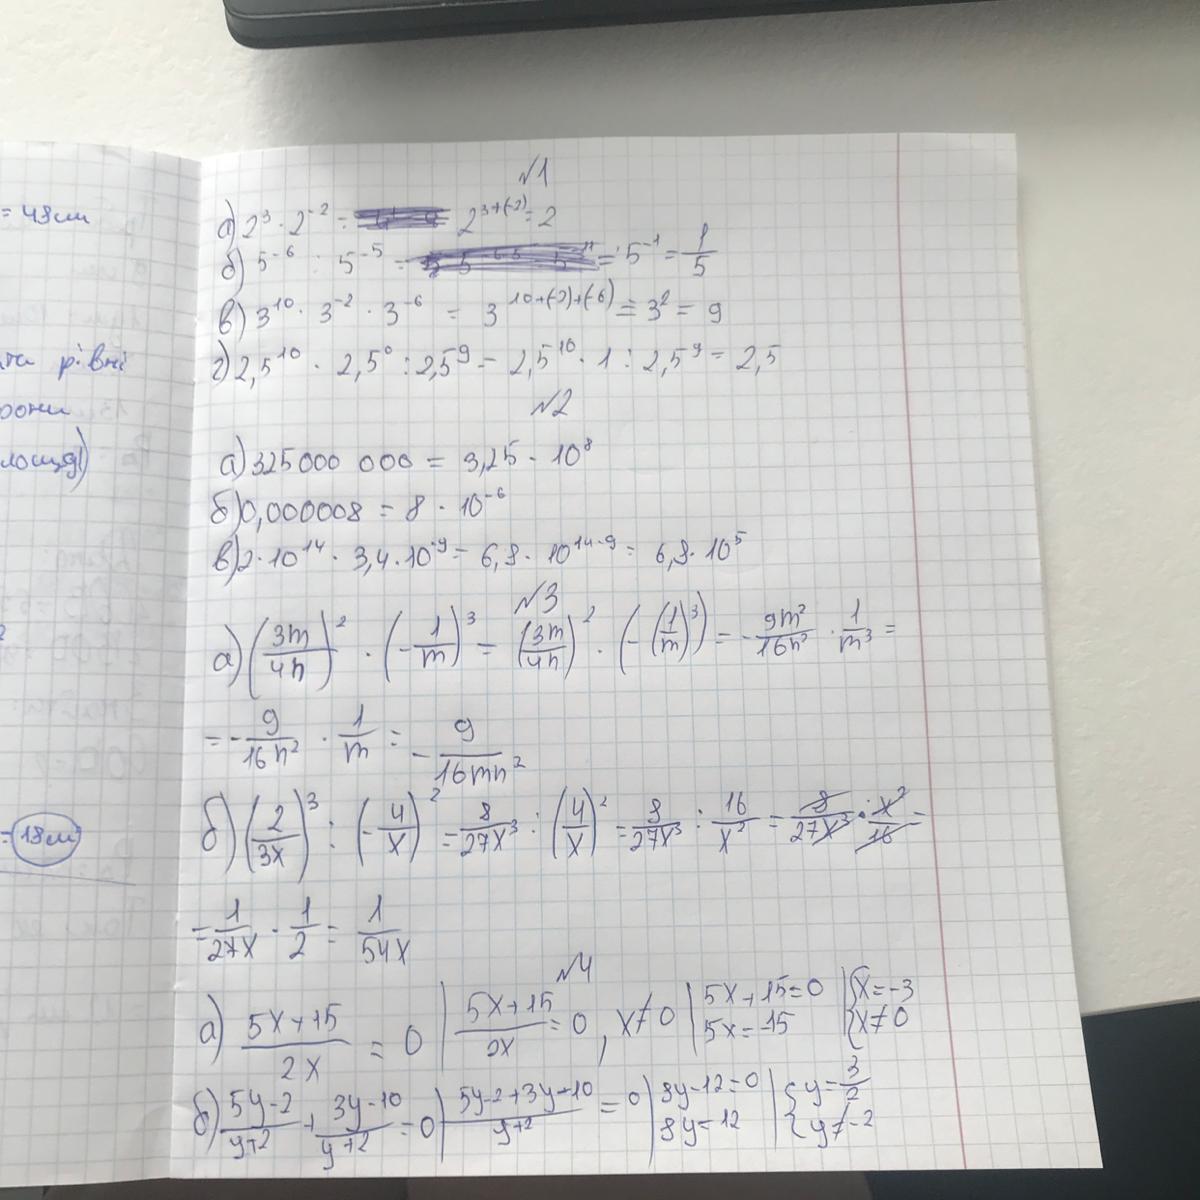 = 48 см
рівні
№1
а) 2³ · 2⁻² = 2³⁺⁽⁻²⁾ = 2
б) 5⁻⁶ : 5⁻⁵ = = 5⁻¹ = 1/5
в) 3¹⁰ · 3⁻² · 3⁻⁶ = 3¹⁰⁺⁽⁻²⁾⁺⁽⁻⁶⁾ = 3² = 9
г) 2,5¹⁰ · 2,5⁰ : 2,5⁹ = 2,5¹⁰ · 1 : 2,5⁹ = 2,5
№2
а) 325000 000 = 3,25 · 10⁸
б) 0,000008 = 8 · 10⁻⁶
в) 2 · 10¹⁴ · 3,4 · 10⁻⁹ = 6,8 · 10¹⁴⁻⁹ = 6,8 · 10⁵
№3
а) (3m/4n)² · (-1/m)³ = (3m/4n)² · (-(1/m)³) = - 9m²/16n² · 1/m³ =
= - 9/16n² · 1/m = - 9/16mn²
б) (2/3x)³ : (-4/x)² = 8/27x³ : (4/x)² = 8/27x³ : 16/x² = 8/27x³ · x²/16 =
= 1/27x · 1/2 = 1/54x
= 18 см
№4
а) (5x+15)/2x = 0 | (5x+15)/2x = 0, x≠0 | 5x+15=0 | {x=-3
5x=-15 | {x≠0
б) (5y-2)/(y+2) + (3y-10)/(y+2) = 0 | (5y-2+3y-10)/(y+2) = 0 | 8y-12=0 | {y=3/2
8y=12 | {y≠-2